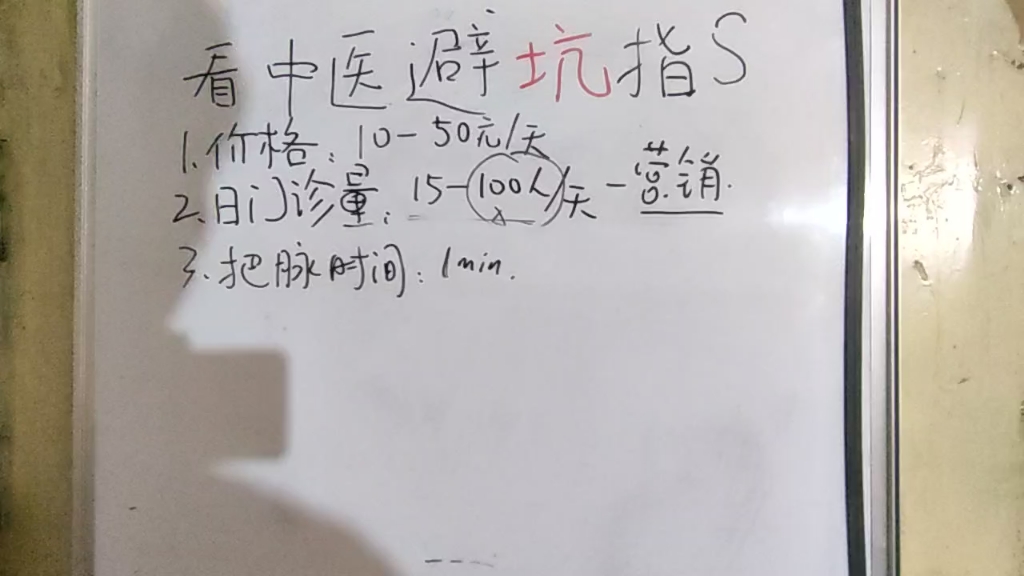 看中医避坑指S
1.价格:10-50元/天
2.日门诊量:15-100人/天-营销.
3.把脉时间:1min.